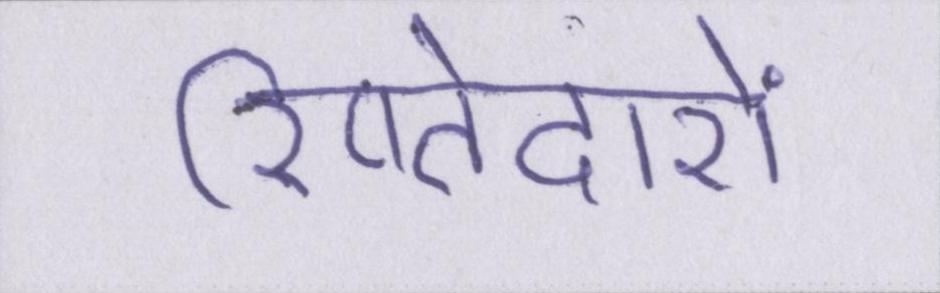 रिश्तेदारों